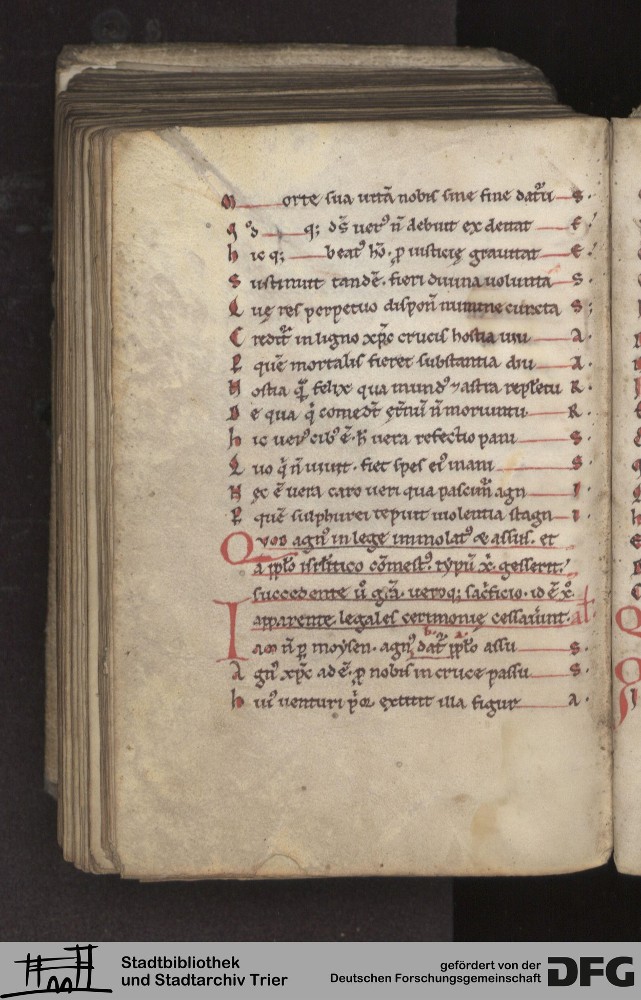 M orte sua uitā nobis sine fine datur' S.
q; dš uer' n̄ debuit ex deitat E
h ic q; beat' hō. ꝑ iusticię grauitat E.
S ustinuit tandē. fieri diuina volunta S.
Q uę res perpetuo dispon̄ numine cuncta S;
C redit' in ligno xp̄c crucis hostia uiu A.
P quē mortalis fieret substantia diu A.
H ostia felix qua mund' ⁊ astra replētu R.
D e qua q comedt n̄ moriuntu R.
h ic uer' cib' ē. h̄ vera refectio pani S.
Q uo q n̄ uiuit. fiet spes ei' inani S
H ęc ē vera caro ueri qua pascim' agn I.
P quē sulphurei repuit uiolentia stagn I.
Quod agn' in lege immolat' & assus. et
a ppl̄o isrl̄itico comest'. typū x. gesserit.
succedente g̅ra. ueroq; sacrificio. id ē x̄o
apparente legales cerimonię cessauint. al
I am n̄ p moysen. agn' dat' ppl̄o assu S.
A gn' xp̄c adē. p nobis in cruce passu S.
h ui' uenturi extitit illa figur A.
Stadtbibliothek
und Stadtarchiv Trier
gefördert von der
Deutschen Forschungsgemeinschaft
DFG